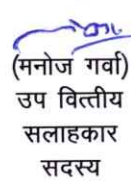 (मनोज गर्वा)
उप वित्तीय
सलाहकार
सदस्य